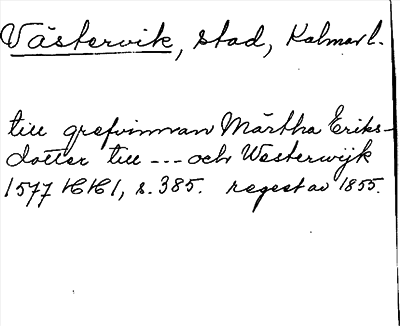 Västervik, stad, Kalmar l.
till grefvinnan Märtha Eriks-
dotter till --- och Westerwijk
1577 HH1, s. 385. regest av 1855.